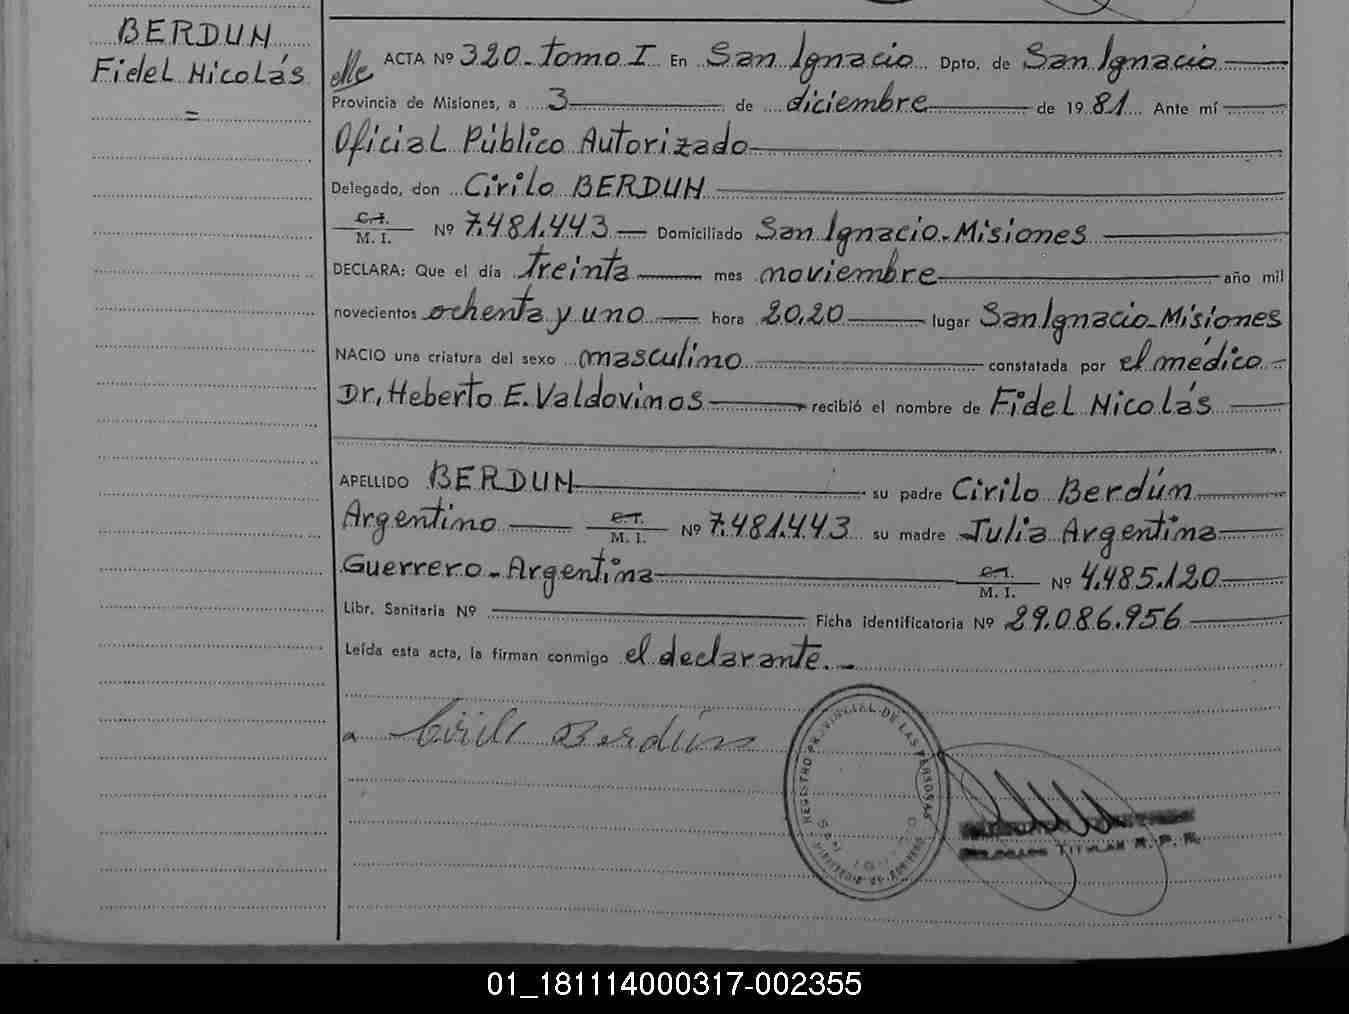 BERDUN
Fidel Nicolás
=
ACTA Nº 320 - Tomo I En San Ignacio Dpto. de San Ignacio
Provincia de Misiones, a 3 de diciembre de 1981 Ante mí
Oficial Público Autorizado
Delegado, don Cirilo BERDUN
C.I. / M. I. Nº 7.481.443 Domiciliado San Ignacio - Misiones
DECLARA: Que el día treinta mes noviembre año mil
novecientos ochenta y uno hora 20,20 lugar San Ignacio - Misiones
NACIO una criatura del sexo masculino constatada por el médico
Dr. Heberto E. Valdovinos recibió el nombre de Fidel Nicolás
APELLIDO BERDUN su padre Cirilo Berdún
Argentino C.I. / M. I. Nº 7.481.443 su madre Julia Argentina
Guerrero - Argentina C.I. / M. I. Nº 4.485.120
Libr. Sanitaria Nº Ficha identificatoria Nº 29.086.956
Leída esta acta, la firman conmigo el declarante. -
a Cirilo Berdún
REGISTRO PROVINCIAL DE LAS PERSONAS
SAN IGNACIO
MINISTERIO DE GOBIERNO
DELEGADO TITULAR R. P. P.
01_181114000317-002355